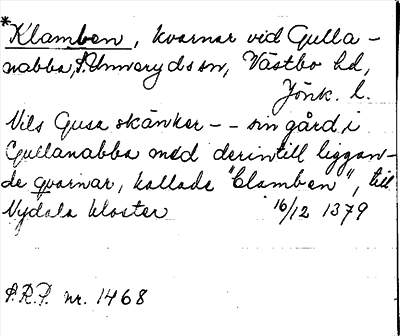 *Klamben, kvarnar vid Gulla-
nabba, S. Unnaryds sn, Västbo hd,
Jönk. l.
Nils Gusa skänker - - sin gård i
Gullanabba med derintill liggan-
de qvarnar, kallade "Clamben", till
Nydala kloster 16/12 1379
S.R.P. nr. 1468